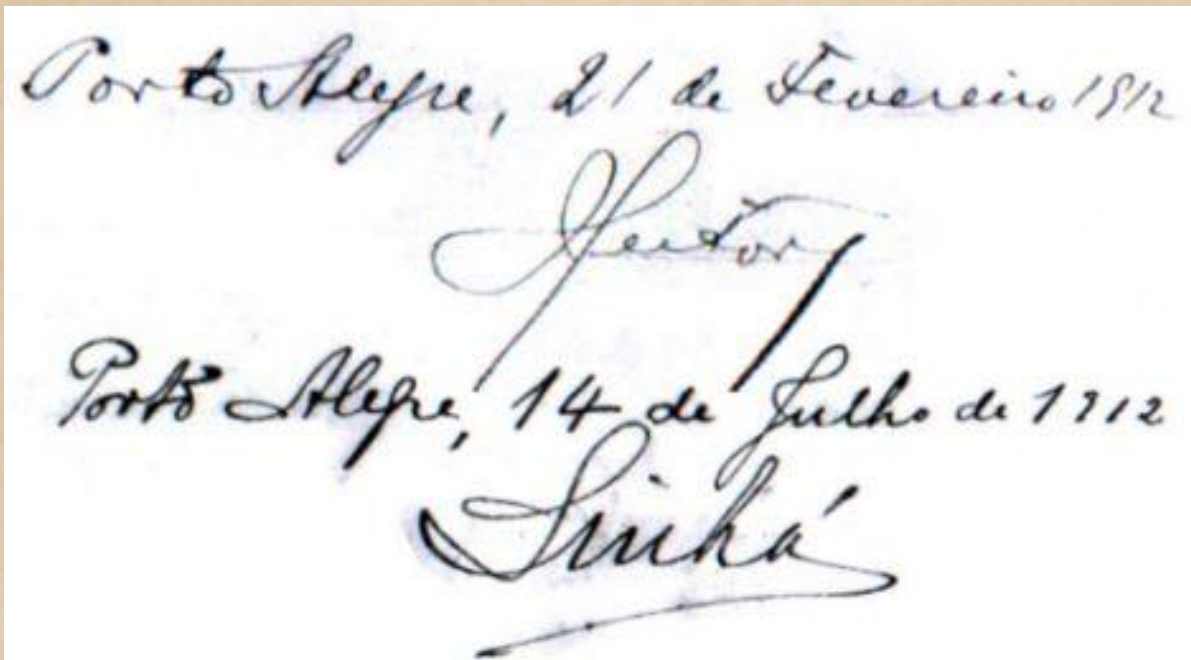 Porto Alegre, 21 de Fevereiro 1912
Heitor
Porto Alegre, 14 de Julho de 1912
Sinhá